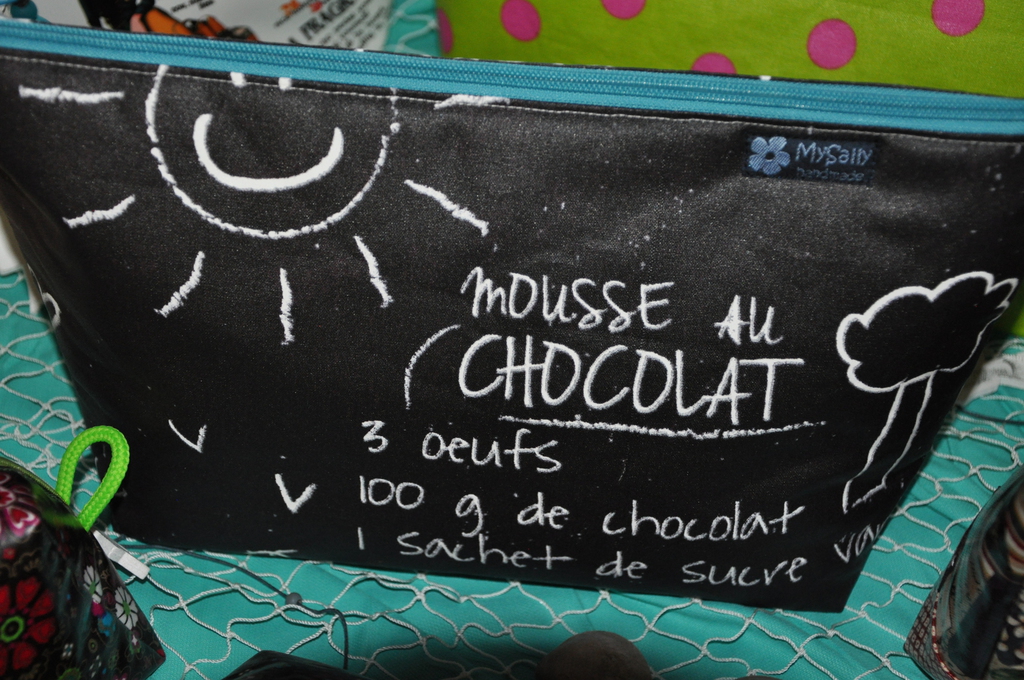 MySally
handmade
MOUSSE AU
CHOCOLAT
3 oeufs
100 g de chocolat
1 sachet de sucre